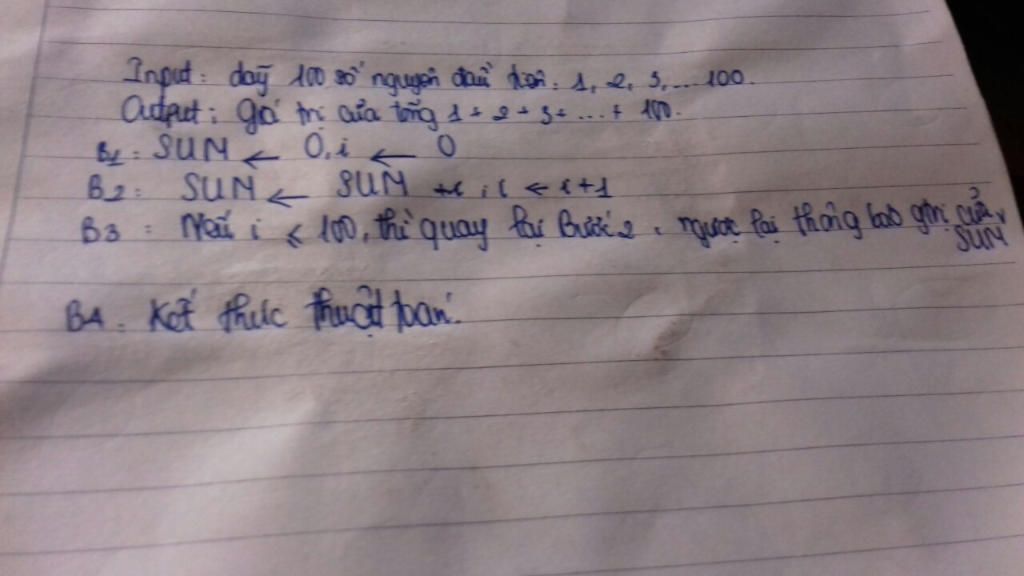 Input: dãy 100 số nguyên đầu tiên: 1, 2, 3, ... 100.
Output: giá trị của tổng 1 + 2 + 3 + .... + 100.
B1: SUM ← 0, i ← 0
B2: SUM ← SUM + i; i ← i+1
B3: Nếu i ≤ 100, thì quay lại bước 2, ngược lại thông báo giá trị của
SUM
B4: Kết thúc thuật toán.